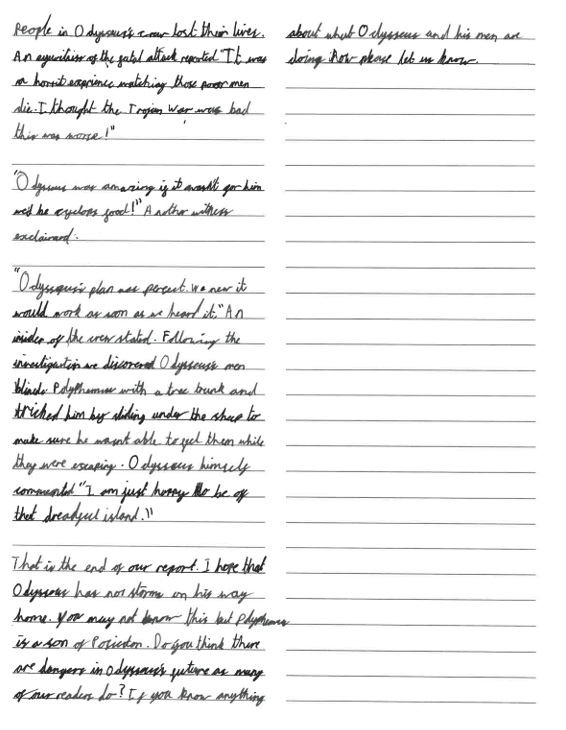 People in Odysseus's crew lost their lives.
An eyewitness of the fatal attack reported "It was
a horrit exprience watching those poor men
die. I thought the Trojan War was bad
this was worse!"
"Odysseus was amazing if it wasn't for him
we'd be cyclops food!" Another witness
exclaimed.
"Odysseus's plan was percect. We new it
would work as soon as we heard it." An
insider of the crew stated. Following the
investigation we discovered Odysseus's men
blinde Polyphemus with a tree trunk and
tricked him by sliding under the sheep to
make sure he wasn't able to get them while
they were escaping. Odysseus himself
commented "I am just happy to be of
that dreadful island."
That is the end of our report. I hope that
Odysseus has no storms on his way
home. You may not know this but Polyphemus
is a son of Poseidon. Do you think there
are dangers in Odysseus's future as many
of our readers do? If you know anything
about what Odysseus and his men are
doing now please let us know.